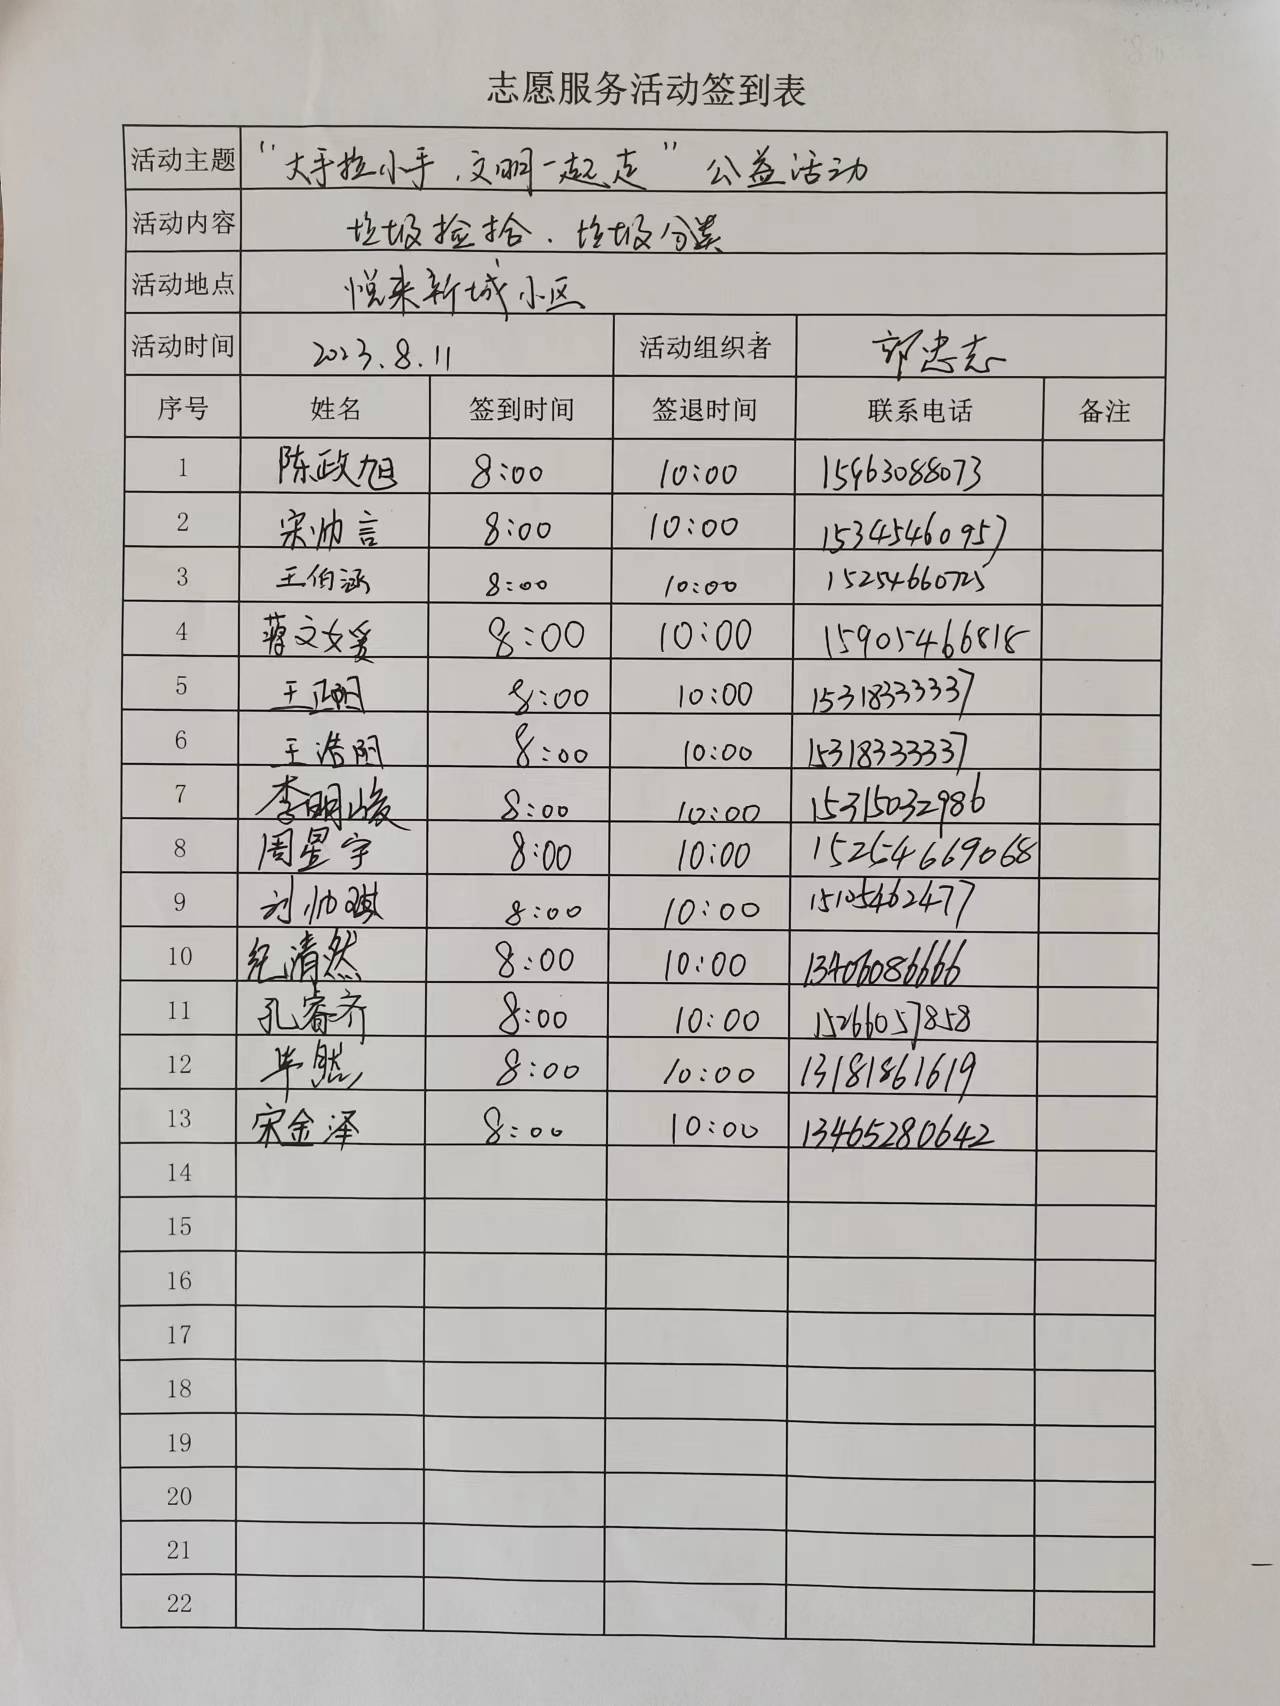 志愿服务活动签到表
活动主题 “大手拉小手，文明一起走”公益活动
活动内容 垃圾捡拾、垃圾分类
活动地点 悦来新城小区
活动时间 2023.8.11 活动组织者 郭忠志
序号 姓名 签到时间 签退时间 联系电话 备注
1 陈政旭 8:00 10:00 15963088073
2 宋帅言 8:00 10:00 15345460957
3 王伯涵 8:00 10:00 15254660725
4 蒋文媛 8:00 10:00 15905466818
5 王正阳 8:00 10:00 15318333337
6 王浩阳 8:00 10:00 15318333337
7 李明峻 8:00 10:00 15315032986
8 周星宇 8:00 10:00 15254669068
9 刘帅琪 8:00 10:00 15105462477
10 纪清然 8:00 10:00 13406086666
11 孔睿齐 8:00 10:00 15266057858
12 毕然 8:00 10:00 13181861619
13 宋金泽 8:00 10:00 13465280642
14
15
16
17
18
19
20
21
22